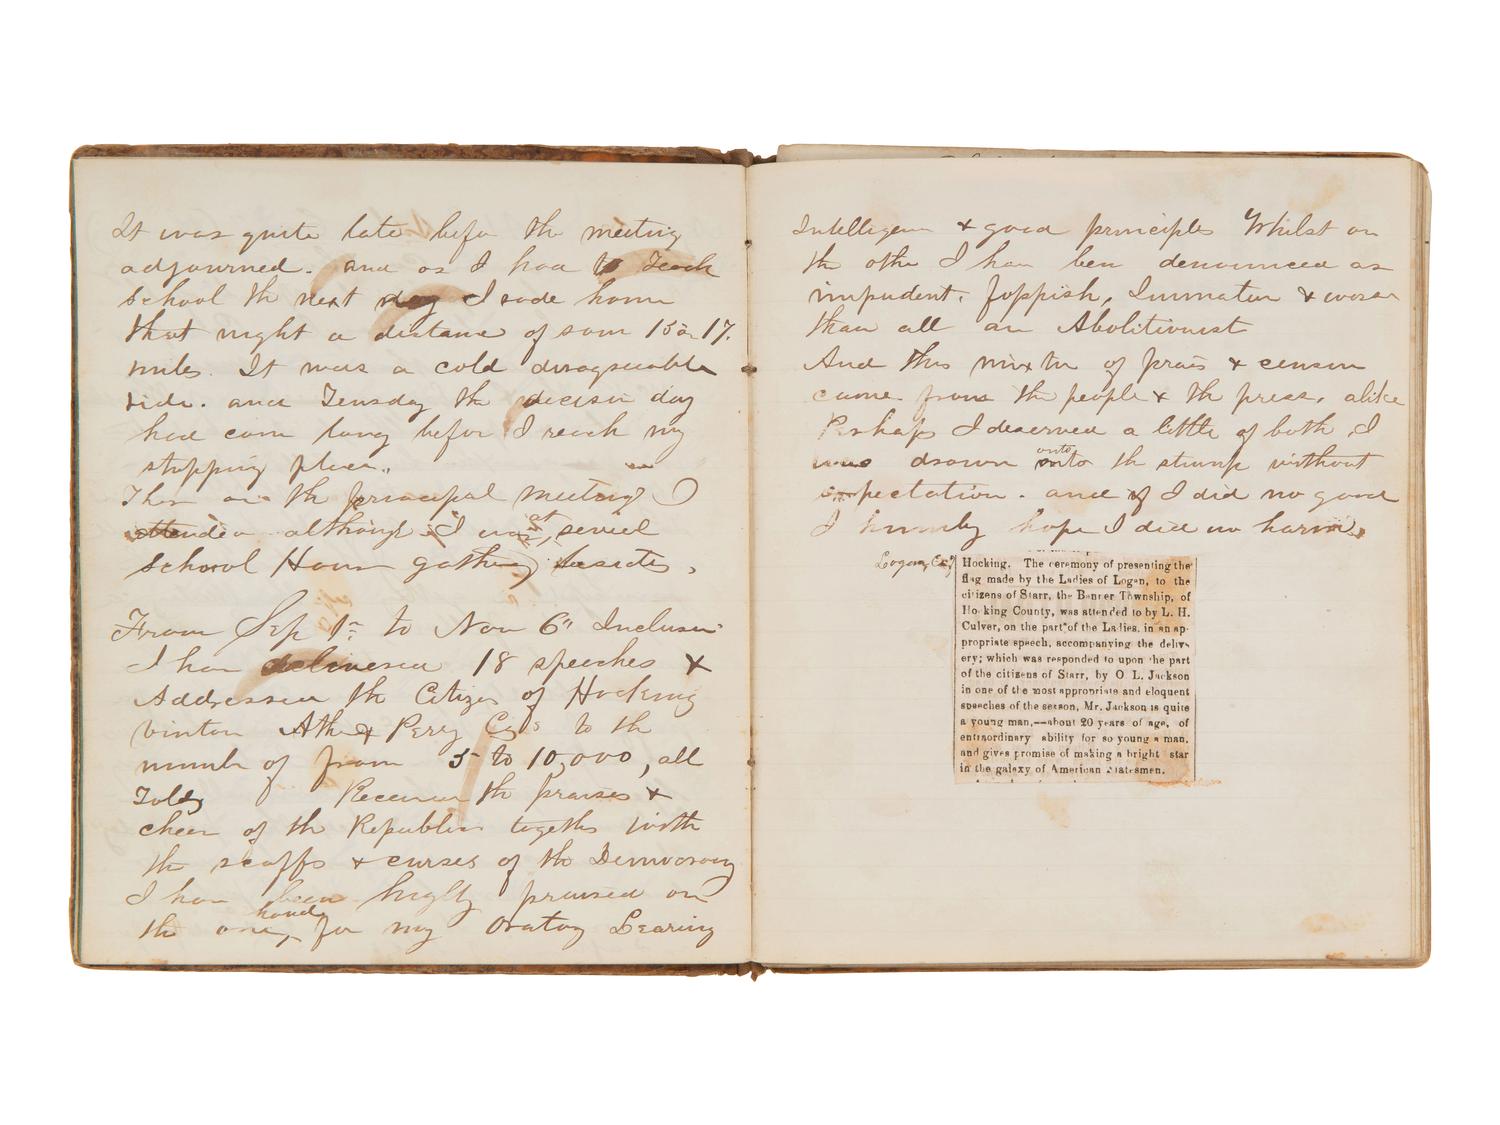 It was quite late befor the meeting
adjourned. and as I had to Teach
School the next day I rode home
that night a distance of som 15 or 17.
miles. It was a cold disagreeable
ride. and Teusday the decisiv day
had com long befor I reach my
stopping place.
Thes are the principal meetings I
attended although I was at, sevrel
School House gatherings besides.
From Sep 1st to Nov 6" Inclusiv
I hav delivered 18 speeches &
Addressed the Citizes of Hocking
Vinton Athe & Perry Co's to the
numbr of from 5 to 10,000, all
Told, Receiven the praises &
cheers of the Republicn togethr with
the scoffs & curses of the Democracy
I hav been highly praised on
the one, hand, for my Oratory Learning
Intelligence & good principles Whilst on
the othe I hav ben denounced as
impudent, foppish, Immature & worse
than all an Abolitionist
And this mixtur of prais & censur
came from the people & the press, alike
Perhaps I deserved a little of both, I
was drawn onto the stump without
expectation. and if I did no good
I humbly hope I did no harm.
Logan, 
Hocking. The ceremony of presenting the
flag made by the Ladies of Logan, to the
citizens of Starr, the Banner Township, of
Hocking County, was attended to by L. H.
Culver, on the part of the Ladies, in an ap-
propriate speech, accompanying the deliv-
ery; which was responded to upon the part
of the citizens of Starr, by O L. Jackson
in one of the most appropriate and eloquent
speeches of the season, Mr. Jackson is quite
a young man,—about 20 years of age, of
entraordinary ability for so young a man,
and gives promise of making a bright star
in the galaxy of American Statesmen.